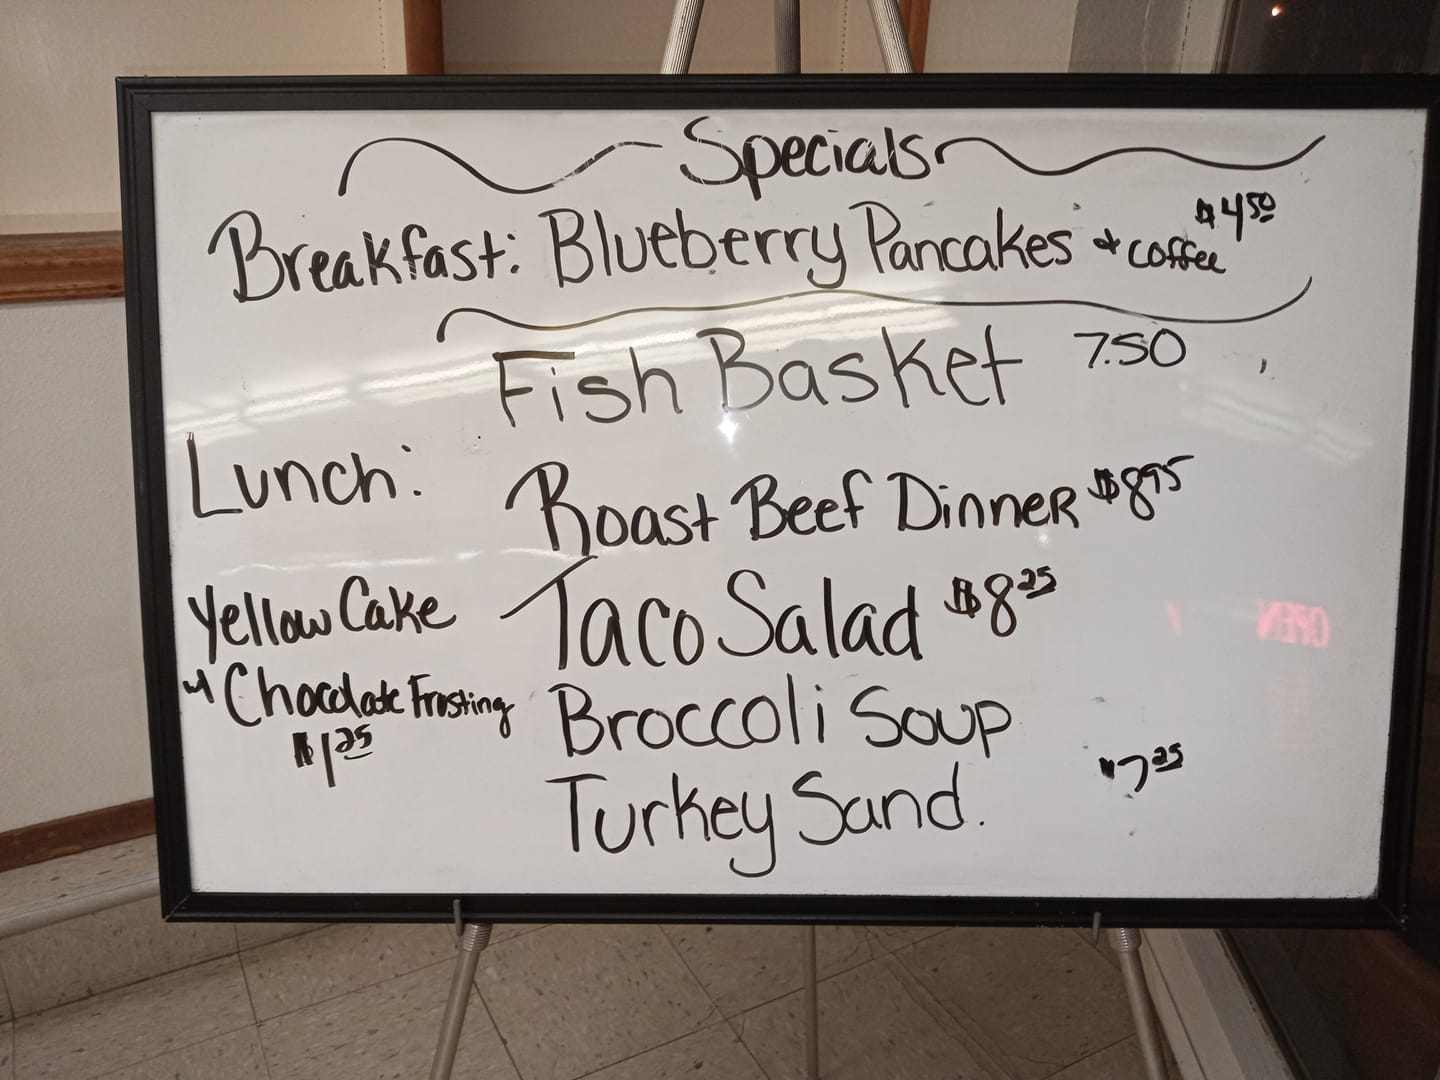 Specials
Breakfast: Blueberry Pancakes & coffee $4.50
Fish Basket 7.50
Lunch:
Roast Beef Dinner $8.95
Yellow Cake
w/ Chocolate Frosting
$1.25
Taco Salad $8.25
Broccoli Soup
Turkey Sand. $7.25
OPEN